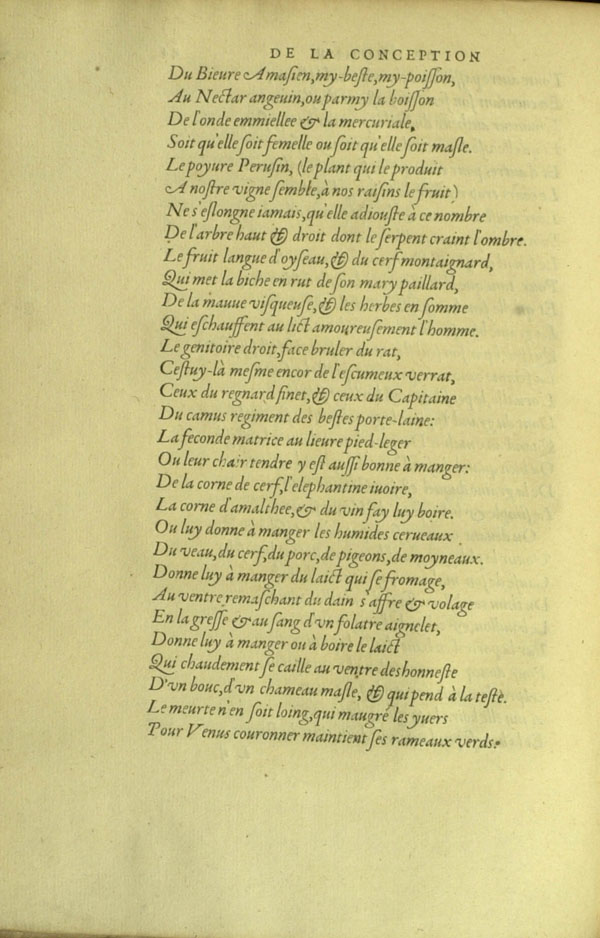 DE LA CONCEPTION
Du Bieure Amasien, my-beste, my-poisson,
Au Nectar angeuin, ou parmy la boisson
De l'onde emmiellee & la mercuriale,
Soit qu'elle soit femelle ou soit qu'elle soit masle.
Le poyure Perusin, (le plant qui le produit
A nostre vigne semble, à nos raisins le fruit)
Ne s'eslongne iamais, qu'elle adiouste à ce nombre
De l'arbre haut & droit dont le serpent craint l'ombre.
Le fruit langue d'oyseau, & du cerf montaignard,
Qui met la biche en rut de son mary paillard,
De la mauue visqueuse, & les herbes en somme
Qui eschauffent au lict amoureusement l'homme.
Le genitoire droit, face bruler du rat,
Cestuy-là mesme encor de l'escumeux verrat,
Ceux du regnard finet, & ceux du Capitaine
Du camus regiment des bestes porte-laine:
La feconde matrice au lieure pied-leger
Ou leur chair tendre y est aussi bonne à manger:
De la corne de cerf, l'elephantine iuoire,
La corne d'amalthee, & du vin fay luy boire.
Ou luy donne à manger les humides cerueaux
Du veau, du cerf, du porc, de pigeons, de moyneaux.
Donne luy à manger du laict qui se fromage,
Au ventre remaschant du dain s'affre & volage
En la gresse & au sang d'vn folatre aignelet,
Donne luy à manger ou à boire le laict
Qui chaudement se caille au ventre deshonneste
D'vn bouc, d'vn chameau masle, & qui pend à la teste.
Le meurte n'en soit loing, qui maugré les yuers
Pour Venus couronner maintient ses rameaux verds: